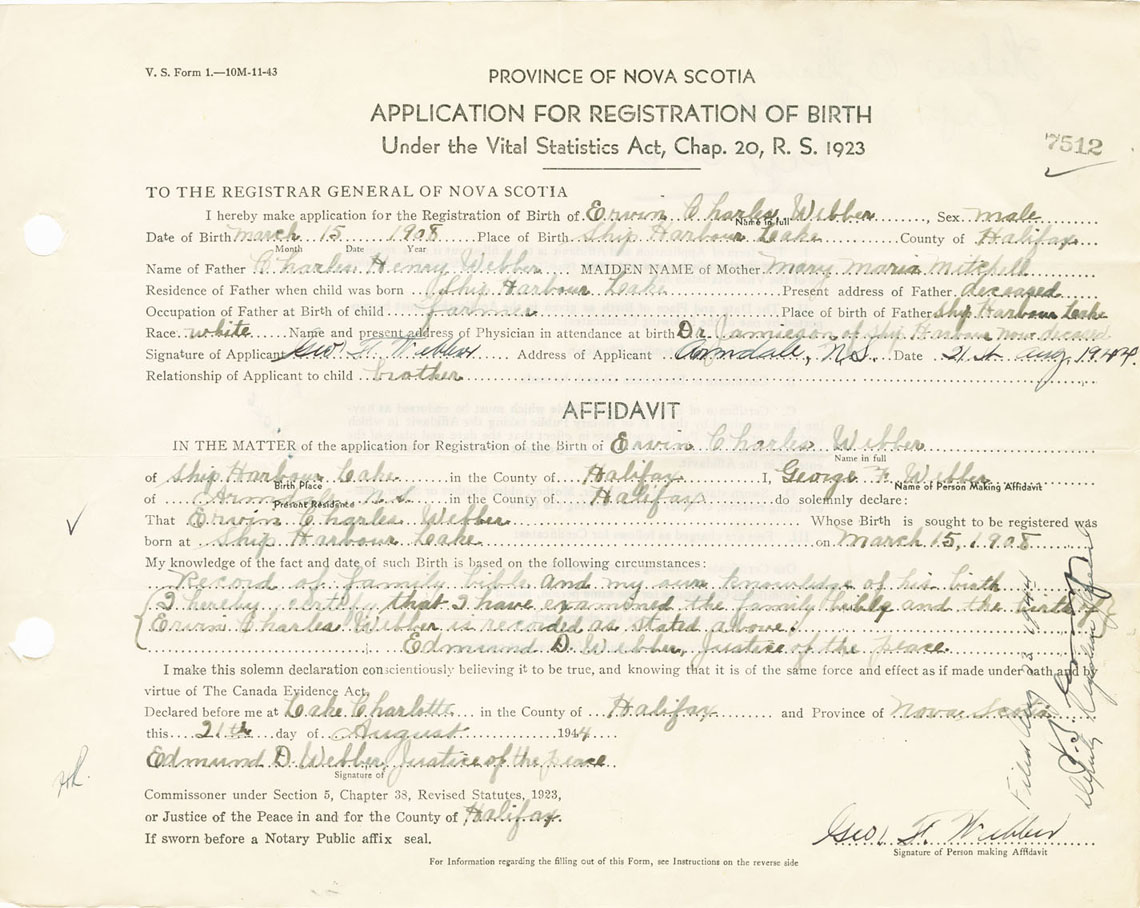 V. S. Form 1.—10M-11-43
PROVINCE OF NOVA SCOTIA
APPLICATION FOR REGISTRATION OF BIRTH
Under the Vital Statistics Act, Chap. 20, R. S. 1923
7512
TO THE REGISTRAR GENERAL OF NOVA SCOTIA
I hereby make application for the Registration of Birth of Erwin Charles Webber, Sex male
Name in full
Date of Birth March 15 1908 Place of Birth Ship Harbour Lake County of Halifax
Month Date Year
Name of Father Charles Henry Webber MAIDEN NAME of Mother Mary Maria Mitchell
Residence of Father when child was born Ship Harbour Lake Present address of Father deceased
Occupation of Father at Birth of child farmer Place of birth of Father Ship Harbour Lake
Race white Name and present address of Physician in attendance at birth Dr. Jamieson of Ship Harbour now deceased
Signature of Applicant Geo. F. Webber Address of Applicant Armdale, N.S. Date 21st Aug, 1944.
Relationship of Applicant to child brother
AFFIDAVIT
IN THE MATTER of the application for Registration of the Birth of Erwin Charles Webber
Name in full
of Ship Harbour Lake in the County of Halifax I, George F. Webber
Birth Place Name of Person Making Affidavit
of Armdale N.S. in the County of Halifax do solemnly declare:
Present Residence
That Erwin Charles Webber Whose Birth is sought to be registered was
born at Ship Harbour Lake on March 15, 1908
My knowledge of the fact and date of such Birth is based on the following circumstances:
Record of family bible and my own knowledge of his birth
(I hereby certify that I have examined the family bible and the birth of
Erwin Charles Webber is recorded as stated above.
Edmund D. Webber, Justice of the peace.
I make this solemn declaration conscientiously believing it to be true, and knowing that it is of the same force and effect as if made under oath and by
virtue of The Canada Evidence Act,
Declared before me at Lake Charlotte in the County of Halifax and Province of Nova Scotia
this 21th day of August 1944
Edmund D. Webber Justice of the peace
Signature of
Commissoner under Section 5, Chapter 38, Revised Statutes, 1923,
or Justice of the Peace in and for the County of Halifax.
If sworn before a Notary Public affix seal.
Geo. F. Webber
Signature of Person making Affidavit
For Information regarding the filling out of this Form, see Instructions on the reverse side
Filed Aug 23 1944
Deputy Registrar General